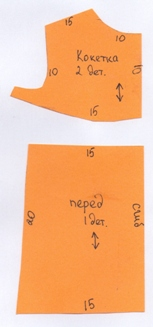 15
10
Кокетка
2 дет.
10
10
15
15
перед
1 дет.
20
сгиб
15